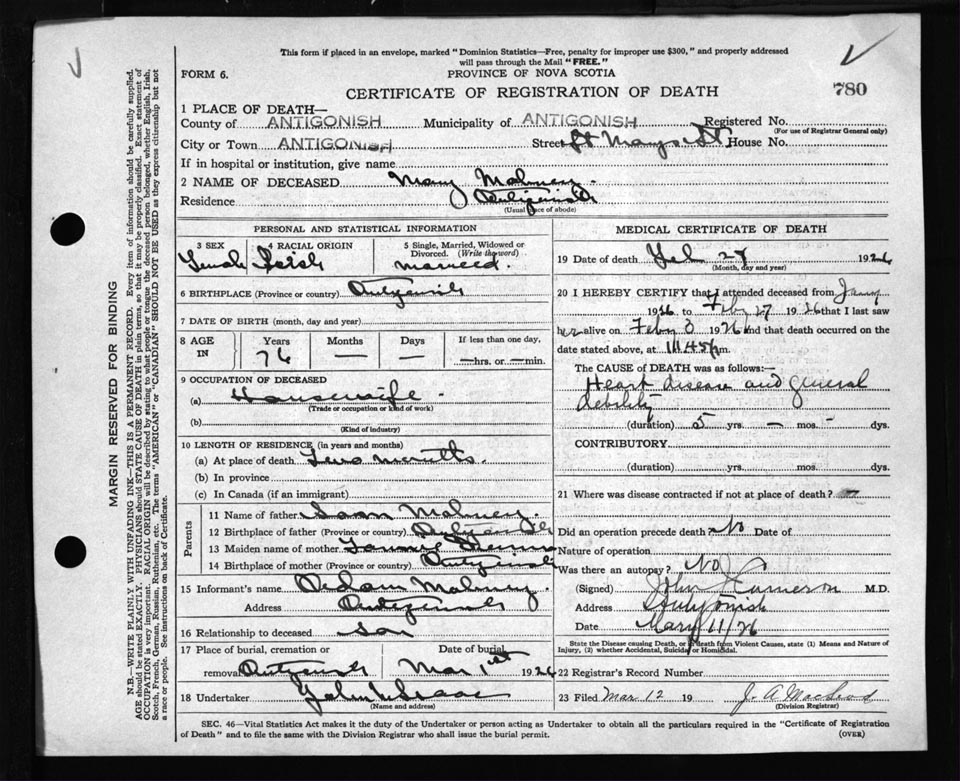 This form if placed in an envelope, marked "Dominion Statistics—Free, penalty for improper use $300," and properly addressed
will pass through the Mail "FREE."
FORM 6.
PROVINCE OF NOVA SCOTIA
CERTIFICATE OF REGISTRATION OF DEATH
780
1 PLACE OF DEATH—
County of ANTIGONISH Municipality of ANTIGONISH Registered No.
(For use of Registrar General only)
City or Town ANTIGONISH Street St Marys St House No.
If in hospital or institution, give name
2 NAME OF DECEASED Mary
Residence Antigonish
(Usual place of abode)
PERSONAL AND STATISTICAL INFORMATION
3 SEX 4 RACIAL ORIGIN 5 Single, Married, Widowed or Divorced. (Write the word)
Female Irish Married.
6 BIRTHPLACE (Province or country) Antigonish
7 DATE OF BIRTH (month, day and year)
8 AGE IN Years Months Days If less than one day,
76 — — —hrs. or —min.
9 OCCUPATION OF DECEASED
(a) Housewife
(Trade or occupation or kind of work)
(b)
(Kind of industry)
10 LENGTH OF RESIDENCE (in years and months)
(a) At place of death Two months.
(b) In province
(c) In Canada (if an immigrant)
Parents
11 Name of father
12 Birthplace of father (Province or country) Antigonish
13 Maiden name of mother
14 Birthplace of mother (Province or country) Antigonish
15 Informant's name
Address Antigonish
16 Relationship to deceased Son
17 Place of burial, cremation or removal Antigonish Date of burial Mar 1st 1926
18 Undertaker John
(Name and address)
MEDICAL CERTIFICATE OF DEATH
19 Date of death Feb 27 1926
(Month, day and year)
20 I HEREBY CERTIFY that I attended deceased from
1926 to Feby 27 1926 that I last saw
her alive on Feby 1926 and that death occurred on
date stated above, at 11.45 pm.
The CAUSE of DEATH was as follows:—
Heart disease and general
debility
(duration) 5 yrs. — mos. — dys.
CONTRIBUTORY
(duration) yrs. mos. dys.
21 Where was disease contracted if not at place of death?
Did an operation precede death? No Date of
Nature of operation
Was there an autopsy? No
(Signed) John Cameron M.D.
Address Antigonish
Date Mar 11/26
State the Disease causing Death, or in death from Violent Causes, state (1) Means and Nature of
Injury, (2) whether Accidental, Suicidal or Homicidal.
22 Registrar's Record Number
23 Filed Mar 12 19 J. A. MacLeod
(Division Registrar)
SEC. 46—Vital Statistics Act makes it the duty of the Undertaker or person acting as Undertaker to obtain all the particulars required in the "Certificate of Registration
of Death" and to file the same with the Division Registrar who shall issue the burial permit.
(OVER)
MARGIN RESERVED FOR BINDING
N.B.—WRITE PLAINLY WITH UNFADING INK—THIS IS A PERMANENT RECORD. Every item of information should be carefully supplied.
AGE should be stated EXACTLY. PHYSICIANS should STATE CAUSE OF DEATH in plain terms, so that it may be properly classified. Exact statement of
OCCUPATION is very important. RACIAL ORIGIN will be described by stating to what people or tongue the deceased person belonged, whether English, Irish,
Scotch, French, German, Russian, Ruthenian, etc. The terms "AMERICAN" or "CANADIAN" SHOULD NOT BE USED as they express citizenship but not
a race or people. See instructions on back of Certificate.